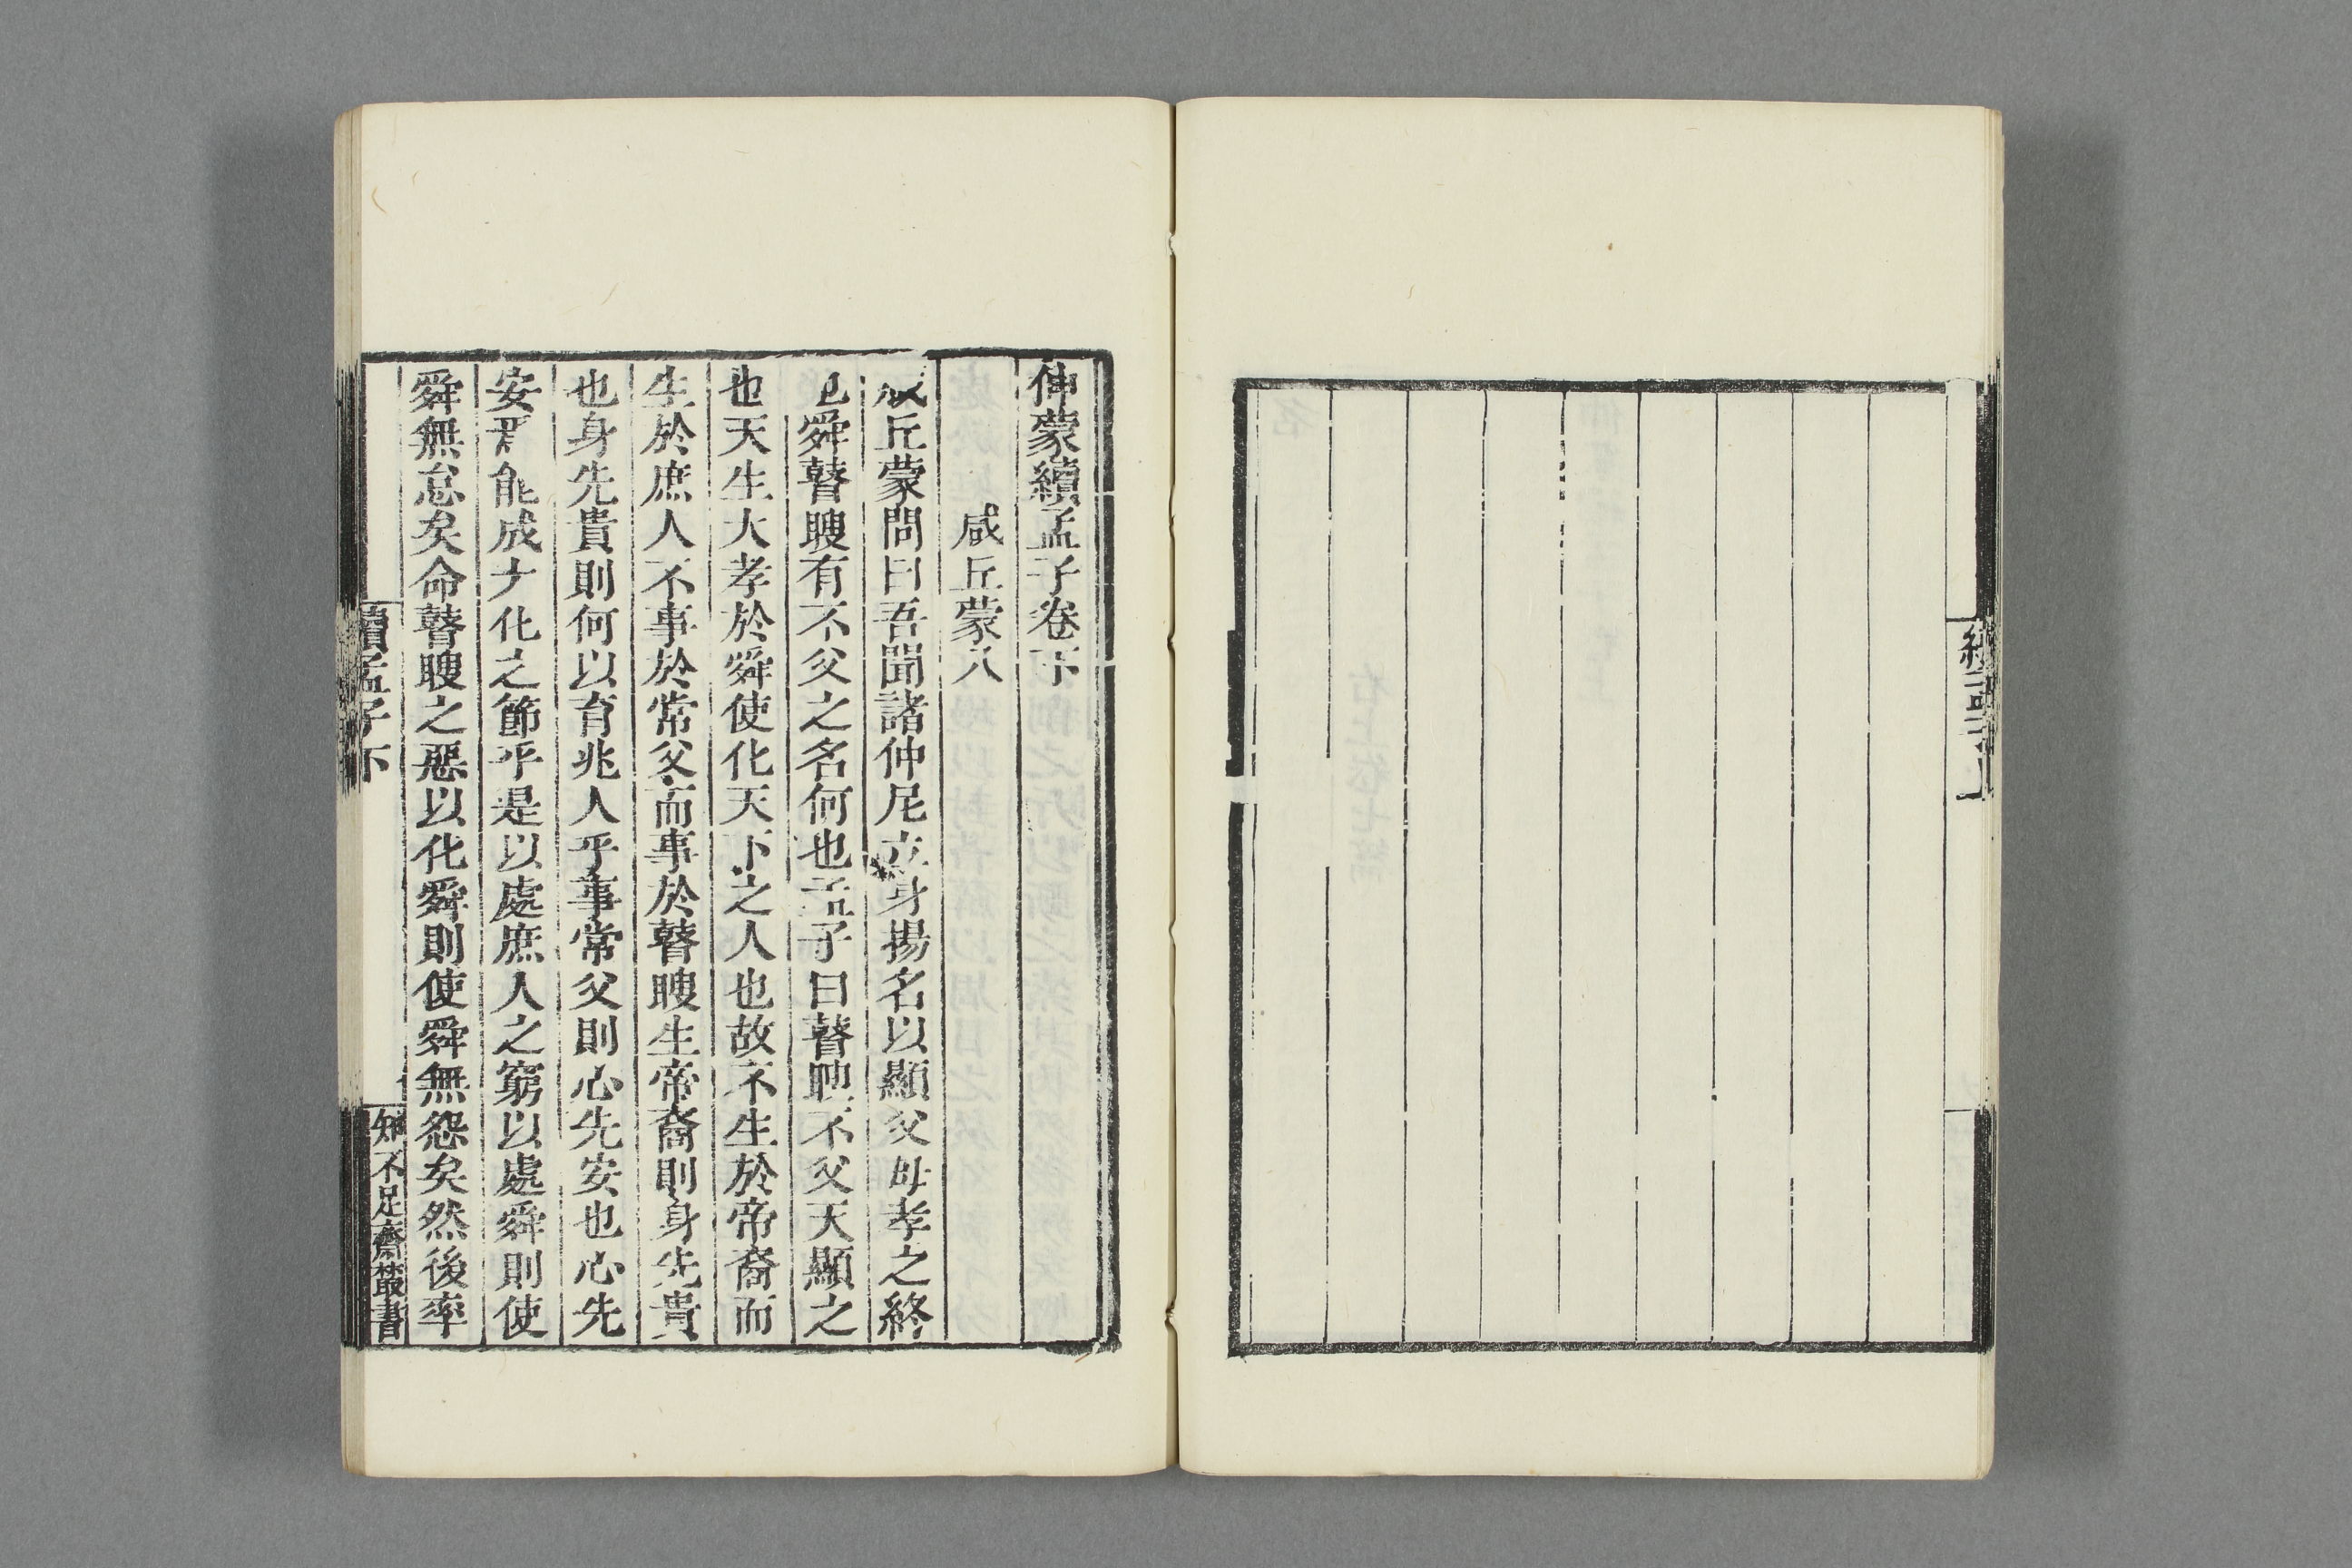 續孟子上
伸蒙續孟子卷下
咸丘蒙八
咸丘蒙問曰吾聞諸仲尼立身揚名以顯父母孝之終
也舜瞽瞍有不父之名何也孟子曰瞽瞍不父天顯之
也天生大孝於舜使化天下之人也故不生於帝裔而
生於庶人不事於常父而事於瞽瞍生帝裔則身先貴
也身先貴則何以育兆人乎事常父則心先安也心先
安焉能成大化之節乎是以處庶人之窮以處舜則使
舜無怠矣命瞽瞍之惡以化舜則使舜無怨矣然後率
續孟子下
知不足齋叢書